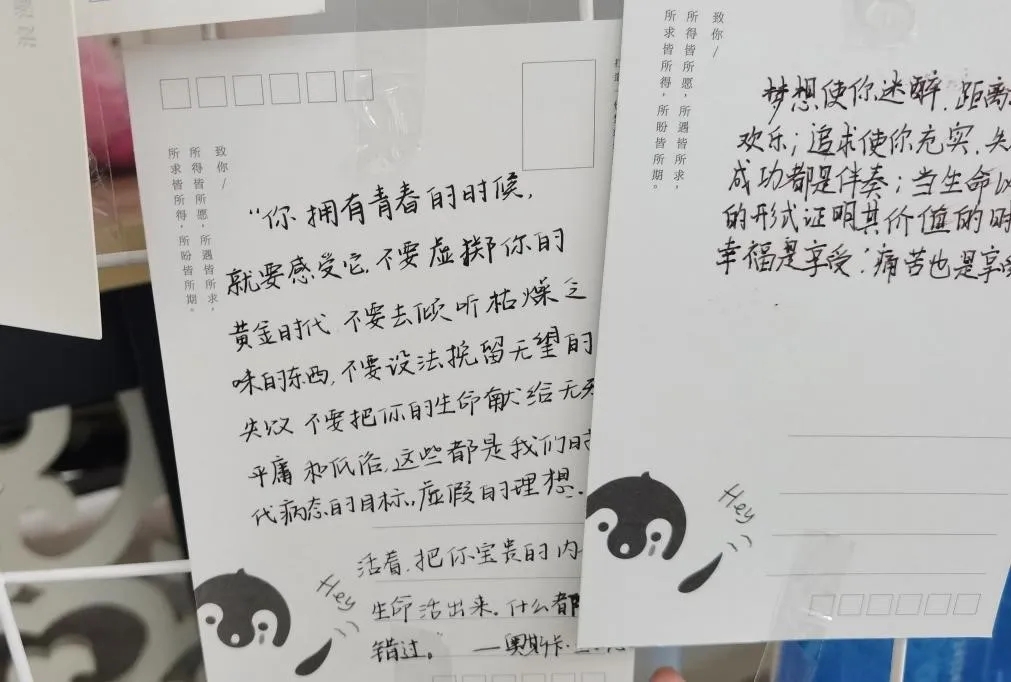 致你/
所得皆所愿，所遇皆所求，
所求皆所得，所盼皆所期。
“你拥有青春的时候，
就要感受它，不要虚掷你的
黄金时代，不要去倾听枯燥乏
味的东西，不要设法挽留无望的
失败，不要把你的生命献给无
平庸和低俗，这些都是我们时
代病态的目标，虚假的理想。
活着，把你宝贵的内
生命活出来。什么都
错过。”——奥斯卡·
Hey
致你/
所得皆所愿，所遇皆所求，
所求皆所得，所盼皆所期。
梦想使你迷醉，距离
欢乐；追求使你充实，失
成功都是伴奏；当生命以
的形式证明其价值的时
幸福是享受，痛苦也是享受
Hey